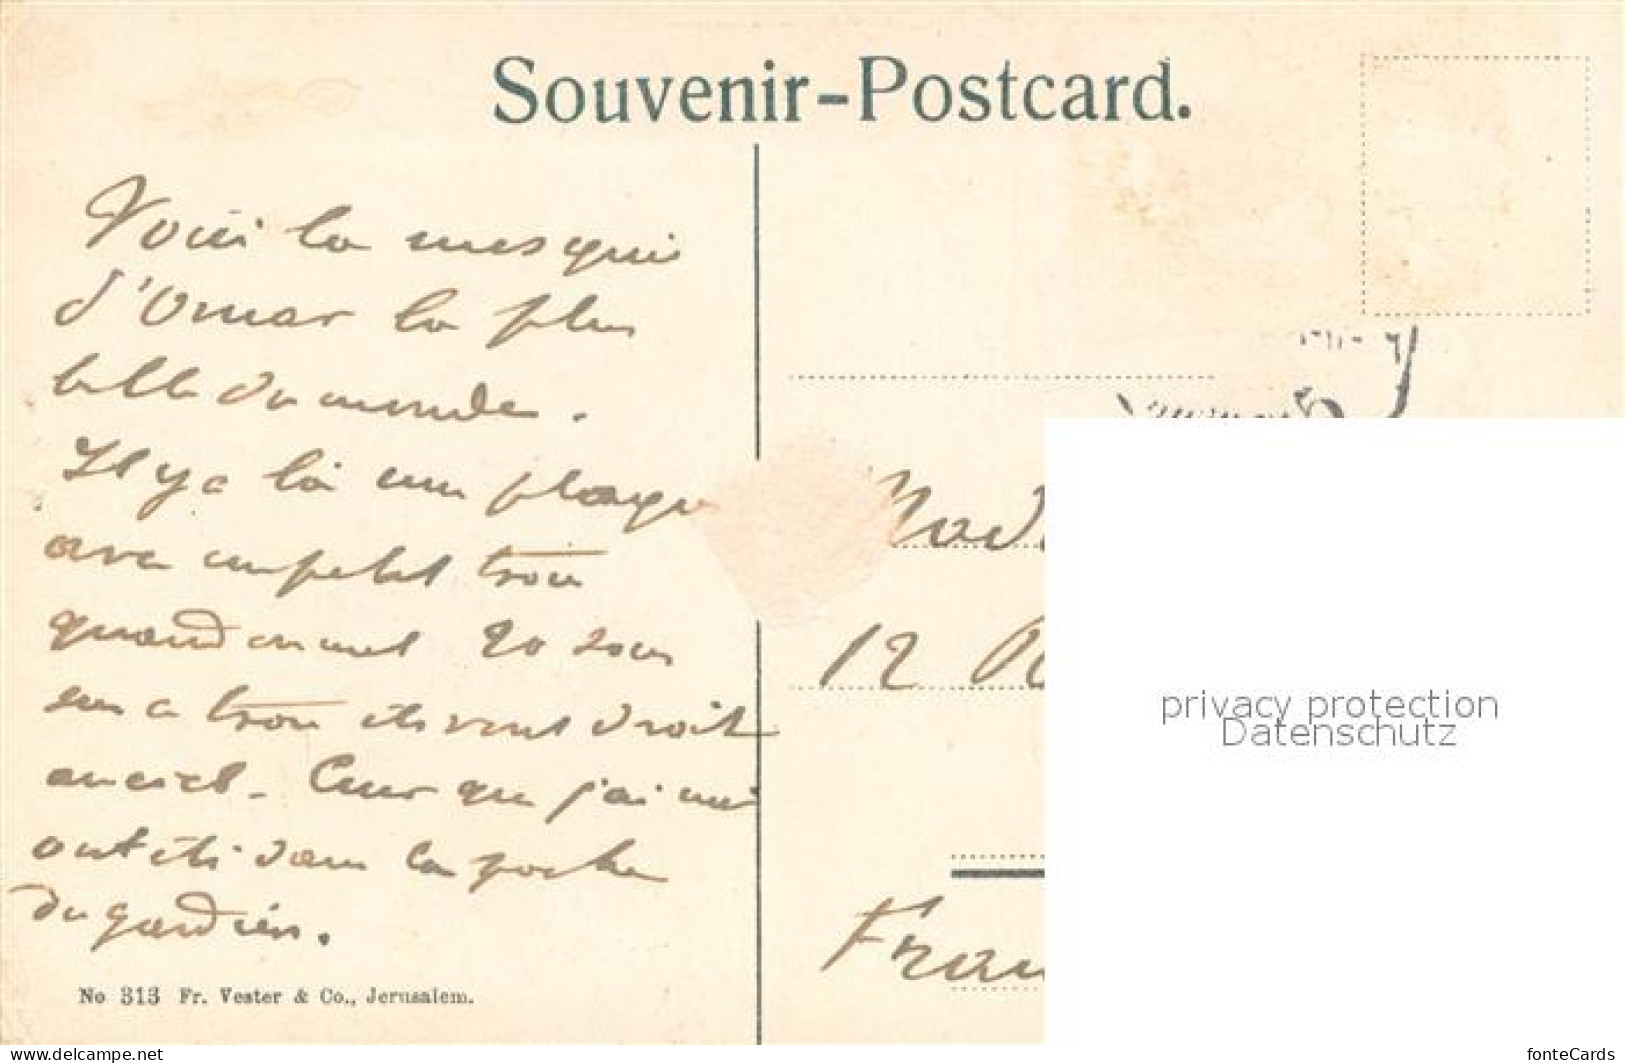 Souvenir-Postcard.
Voici la mosquée
d'Omar la plus
belle du monde.
Il y a là une plaque
avec un petit trou
quand on met 20 sous
dans ce trou ils vont droit
au ciel. Ceux que j'ai mis
ont été dans la poche
du gardien.
No 313 Fr. Vester & Co., Jerusalem.
12
privacy protection
Datenschutz
www.delcampe.net
fonteCards